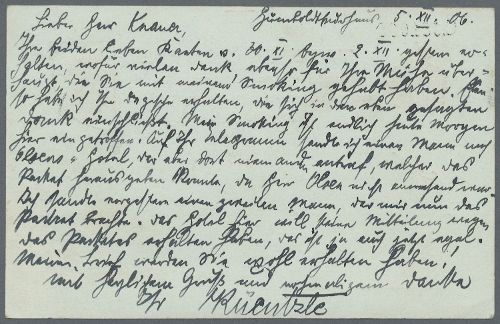 Lieber Herr Knauer, Humboldthafen, 5. XII. 06.
Ihre beiden lieben Karten v. 30. XI. bezw. 2. XII. gestern er-
halten, wofür vielen Dank ebenso für Ihre Mühe über-
haupt die Sie mit meinem Smoking gehabt haben.
so habe ich Ihre Depesche erhalten, die für
Dank einschließt. Mein Smoking ist endlich heute Morgen
hier eingetroffen. Auf Ihr Telegramm sandte ich einen Mann nach
Olsens-Hotel, der aber dort niemanden antraf, welcher das
Packet herausgeben konnte, da Herr Olsen nicht anwesend war.
Ich sandte vorgestern einen zweiten Mann der mir nun das
Packet brachte. Das Hotel hier will keine Mitteilung wegen
des Packetes erhalten haben, das ist ja auch jetzt egal.
Meinen Brief werden Sie wohl erhalten haben!
Mit herzlichem Gruß und nochmaligem Danke
Ihr Küentzle